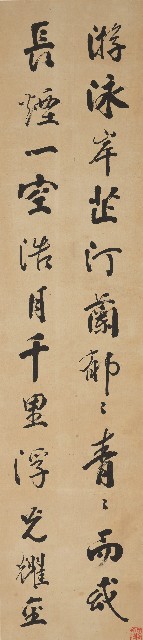 游泳岸芷汀蘭郁〻青〻而或
長煙一空浩月千里浮光耀金